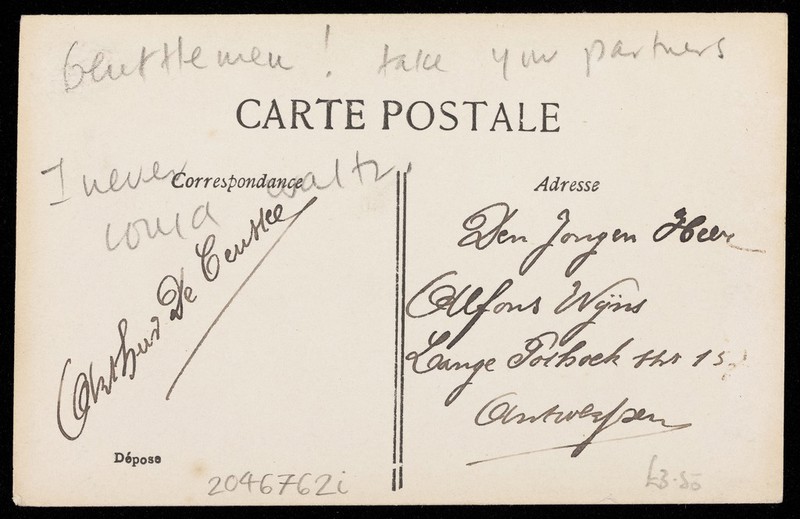 Gentlemen! take your partners
CARTE POSTALE
I never could waltz.
Correspondance
Arthur De Ceuster
Déposé
2046762i
Adresse
Den Jongen Heer
Alfons Wÿns
Lange str 15
Antwerpen
£3.50